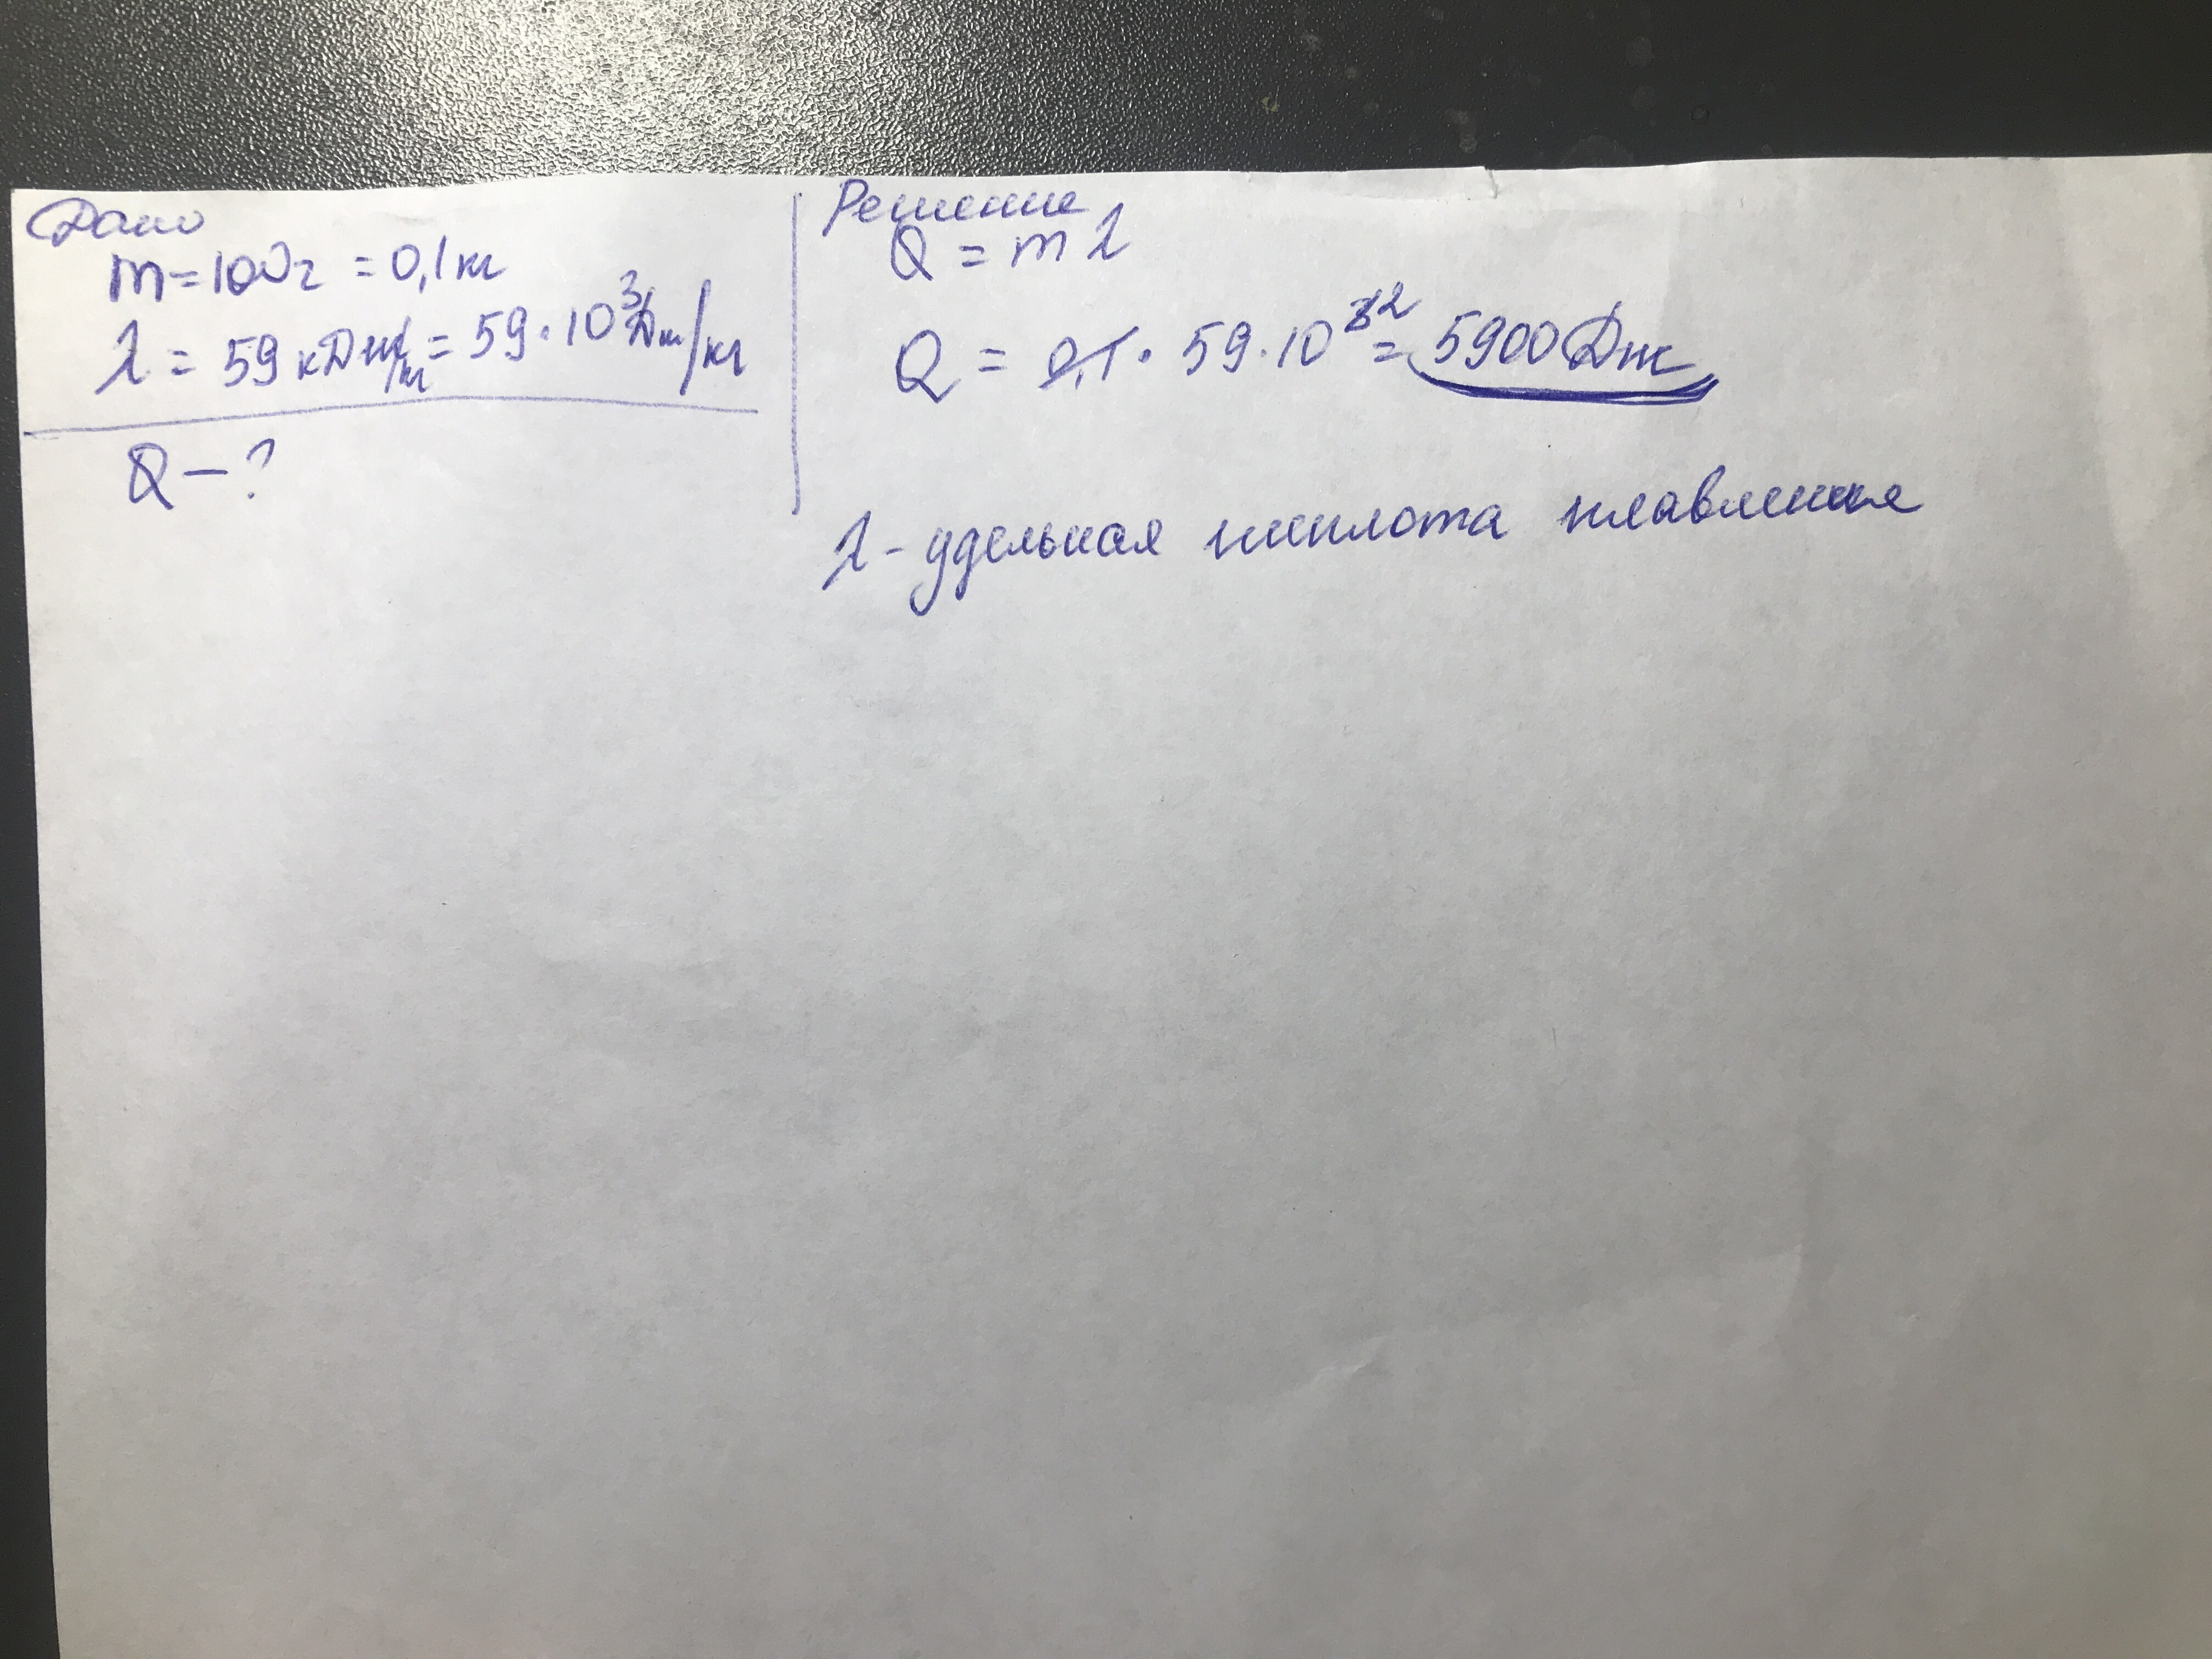 Дано
m=100г = 0,1кг
λ = 59 кДж/кг = 59·10³Дж/кг
Q – ?
Решение
Q = mλ
Q = 0,1 · 59·10² = 5900 Дж
λ - удельная теплота плавления